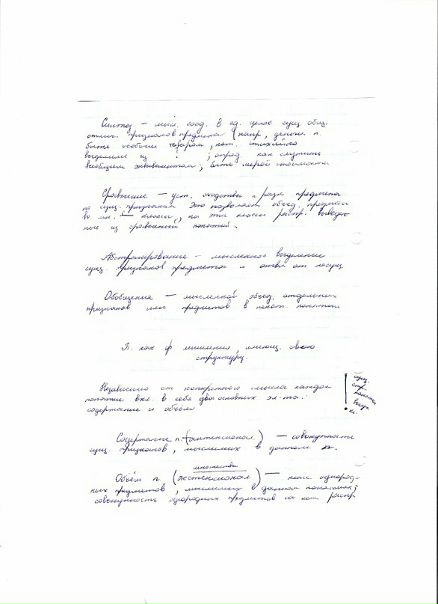 Синтез – мысл. соед. в ед. целое сущ. общ.
отлич. признаков предмета (напр, деньги п.
быть особым товаром, кот. стихийно
выделился из ; опред как служить
всеобщим эквивалентом, быть мерой стоимости
Сравнение – уст. сходства и разл предмета
по сущ. признакам. Это позволяет объед. предметы
во мн. – классы, на эти классы распр.
из сравнений понятий.
Абстрагирование – мысленное выделение
сущ. признаков предмета и отвл от несущ
Обобщение – мысленное объед. отдельных
признаков или предметов в некот. понятии
П. как ф мышления имеющ. свою
структуру.
Независимо от конкретного смысла каждое
понятие вкл в себя два основных эл-та:
содержание и объём
Содержание п. (интенсионал) – совокупность
сущ. признаков, мыслимых в данном п.
множество
Объём п. (экстенсионал) – класс однород-
ных предметов, мыслимых в данном понятии;
совокупность однородных предметов на кот распр